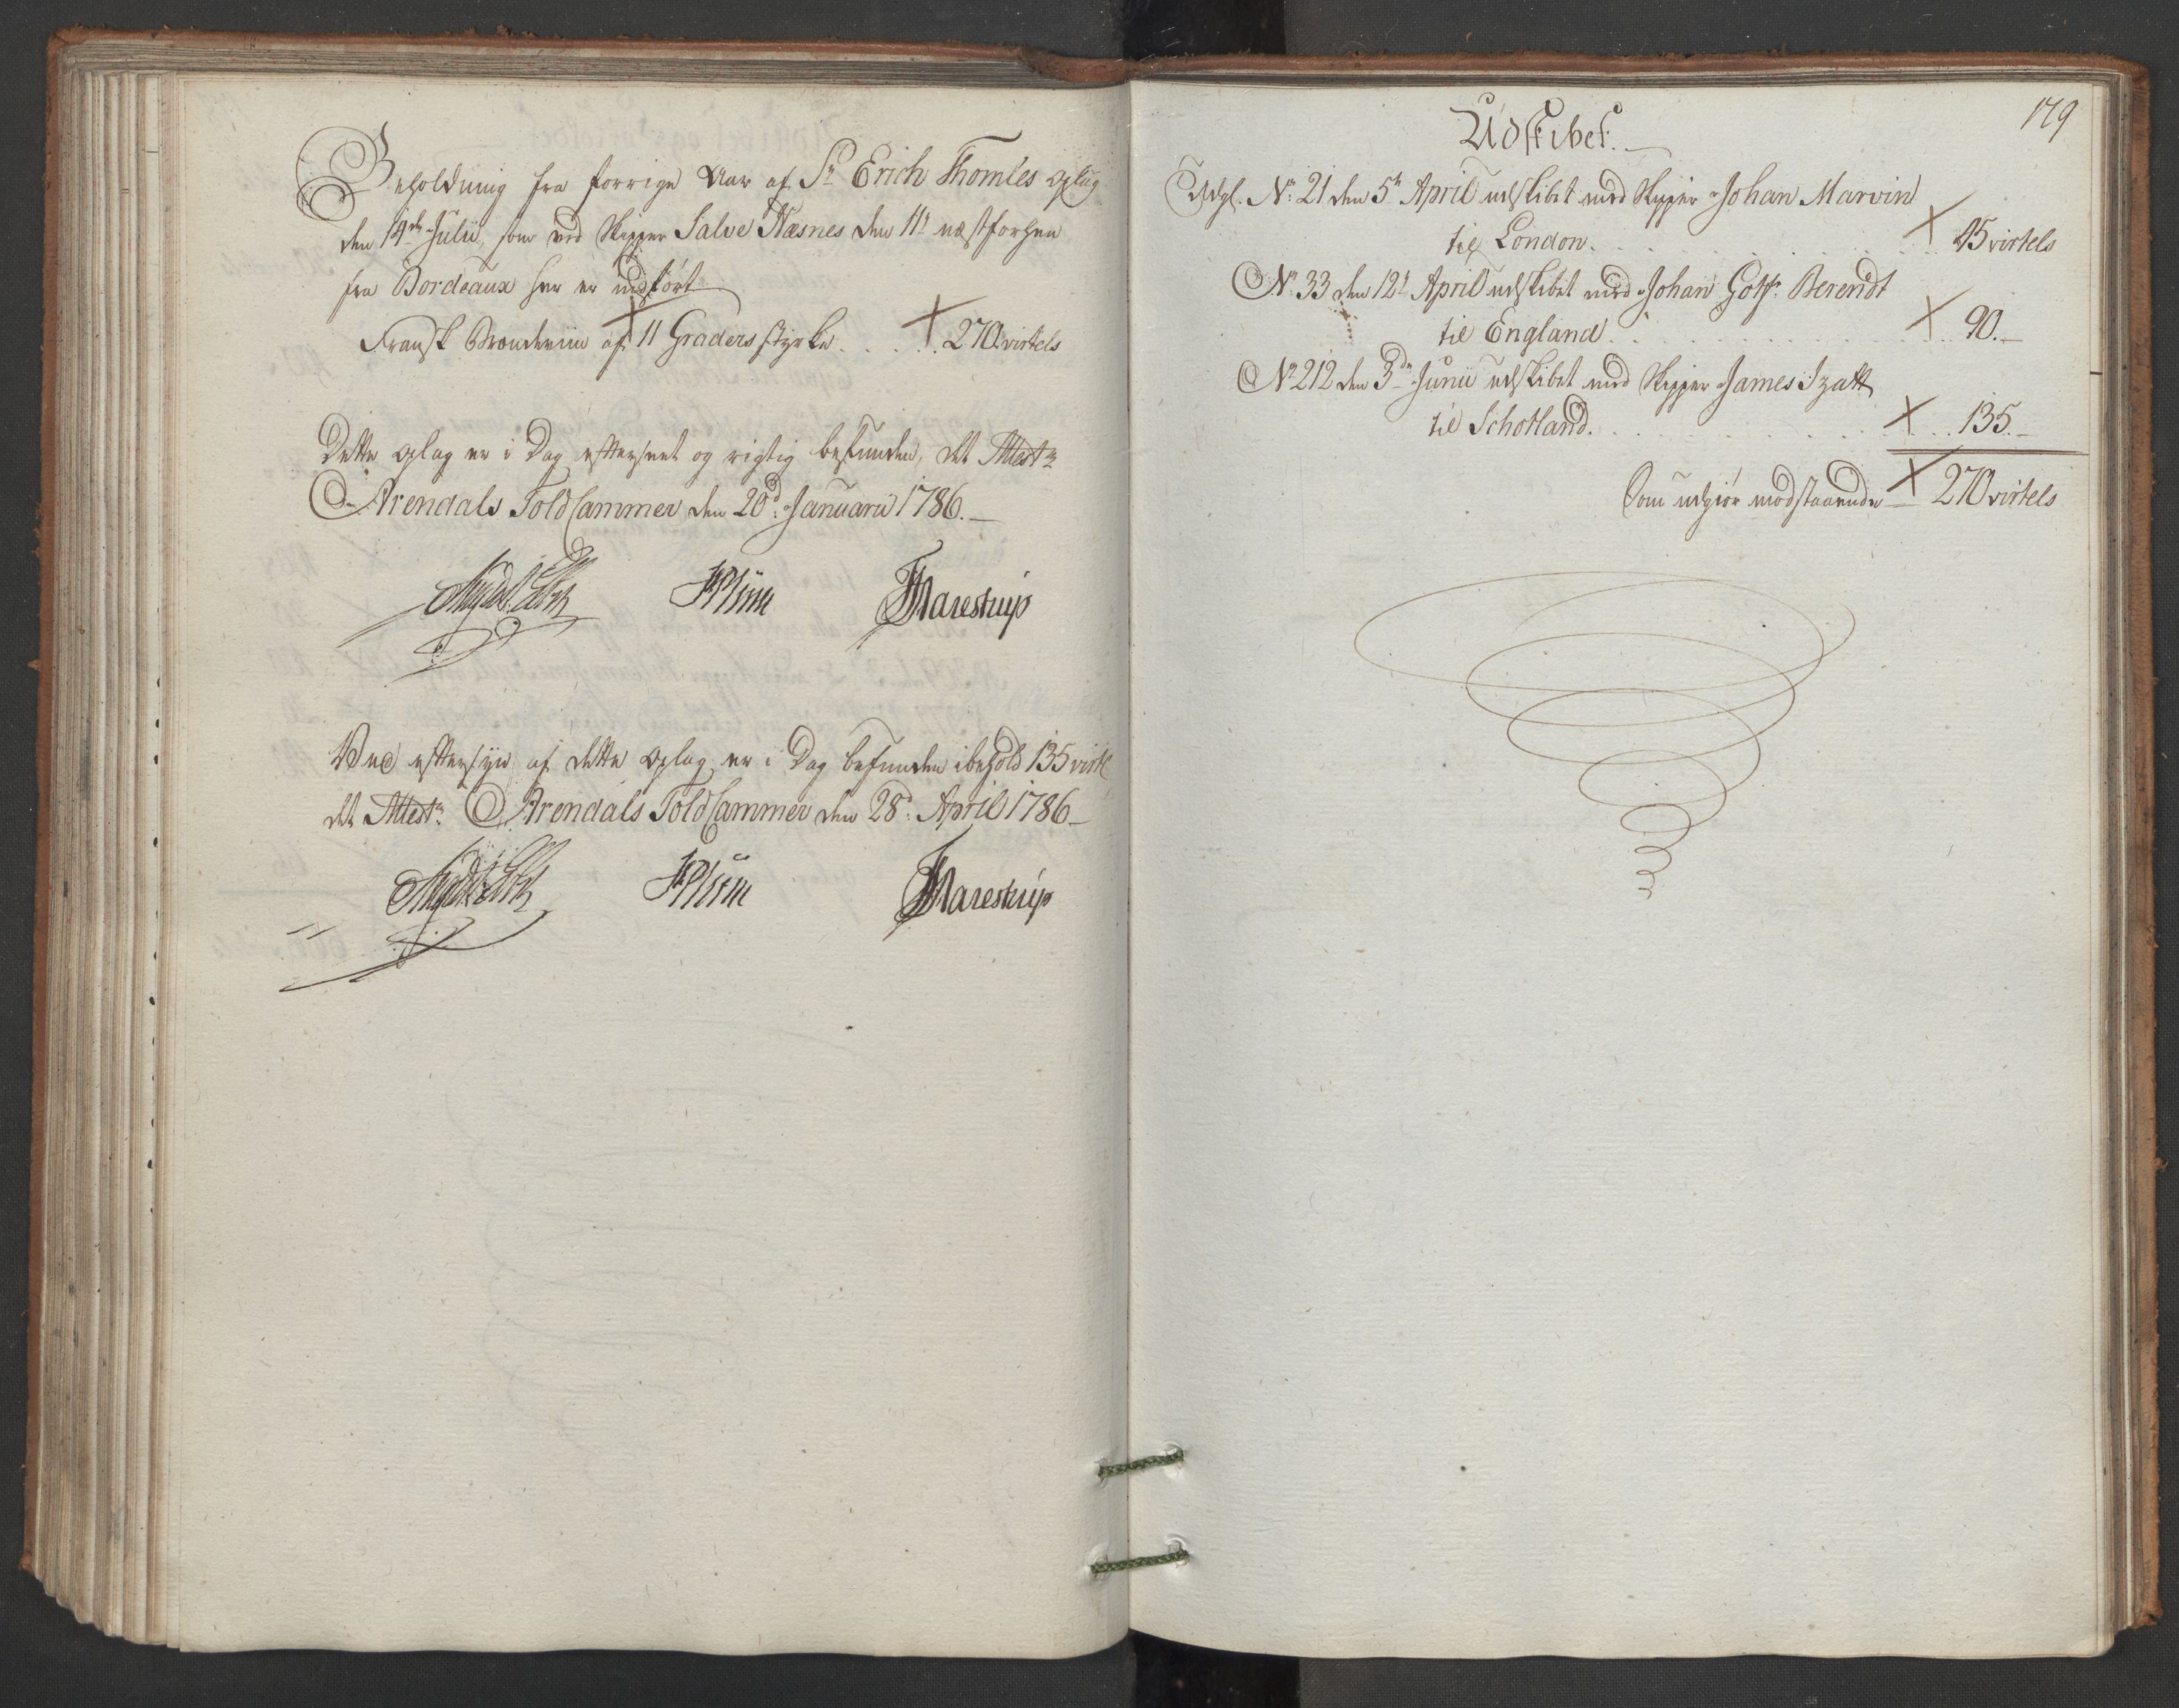 Beholdning fra forrige Aar af Sr Erich Thomles oplag
den 14de Julii, som med Skipper Salve Næsnes den 11te næstforhen
fra Bordeaux her er indført
Fransk Brændeviin af 11 Graders styrke . . . . 270 virtels
Dette oplag er i Dag efterseet og rigtig befunden, det Attestr
Arendals Told Cammer den 20de Januarii 1786.
HPlüm
Marestrup
Ved eftersyn af dette oplag er i Dag befunden ibehold 135 virtl
det Attestr Arendals Told Cammer den 28de April 1786
HPlüm
Marestrup
179
Udskibet.
Udgl. No: 21 den 5te April udskibet med Skipper Johan Marvin
til London . . . . 45 virtels
No 33 den 12te April udskibet med Johan Gotfr. Berendt
til England . . . . 90.
No 212 den 3de Junii udskibet med Skipper James Izatt
til Schotland. . . . . 135.
Som udgiør modstaaende 270 virtels